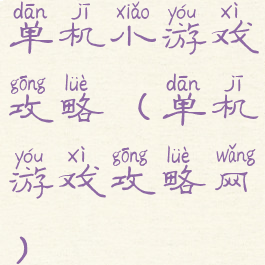 dān jī xiǎo yóu xì
单机小游戏
gōng lüè dān jī
攻略（单机
yóu xì gōng lüè wǎng
游戏攻略网
）